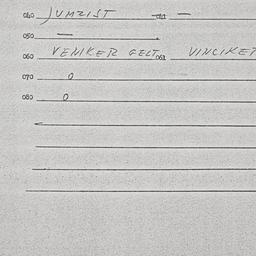 040 JUMZIST 041 —
050 —
060 VENIKER GELT 061 VINCIKET
070 0
080 0